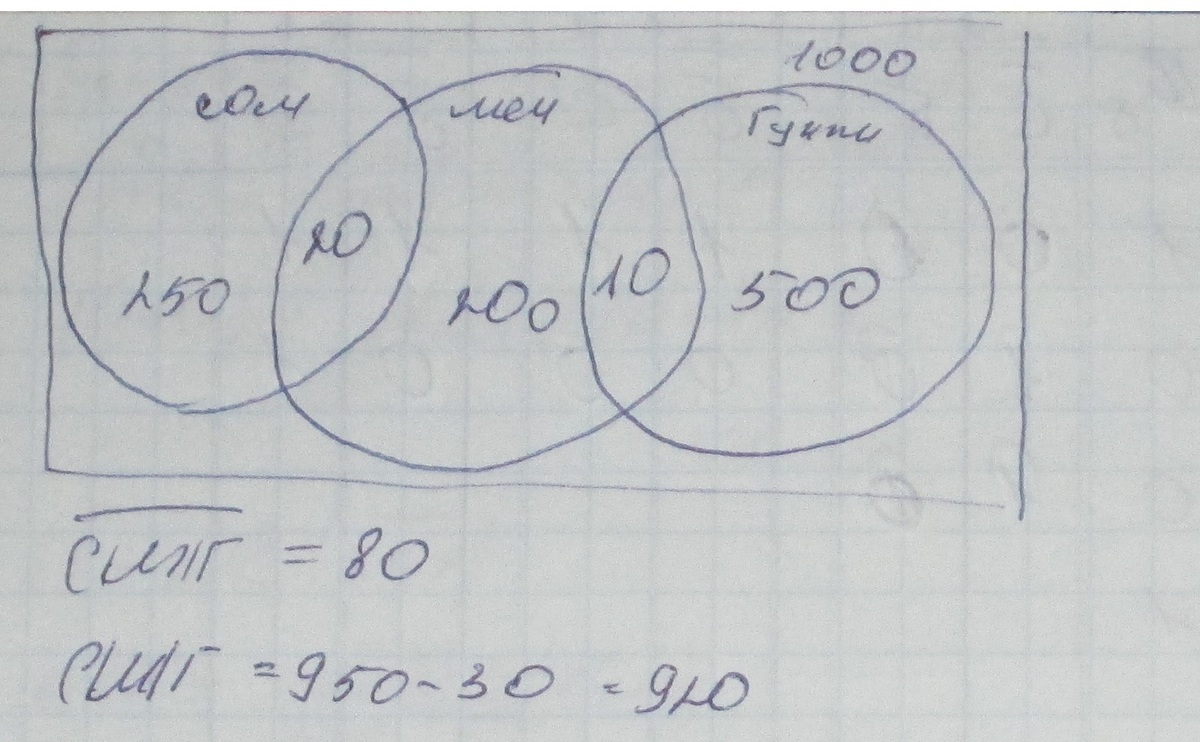 1000
сом меч Гуппи
20
250 200 10 500
= 80
= 950 - 30 = 920